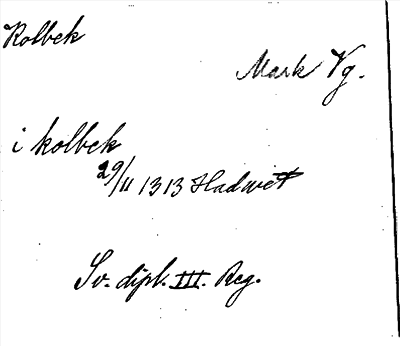 Kolbek
Mark Vg.
i kolbek
29/11 1313
Sv. dipl. III. Reg.